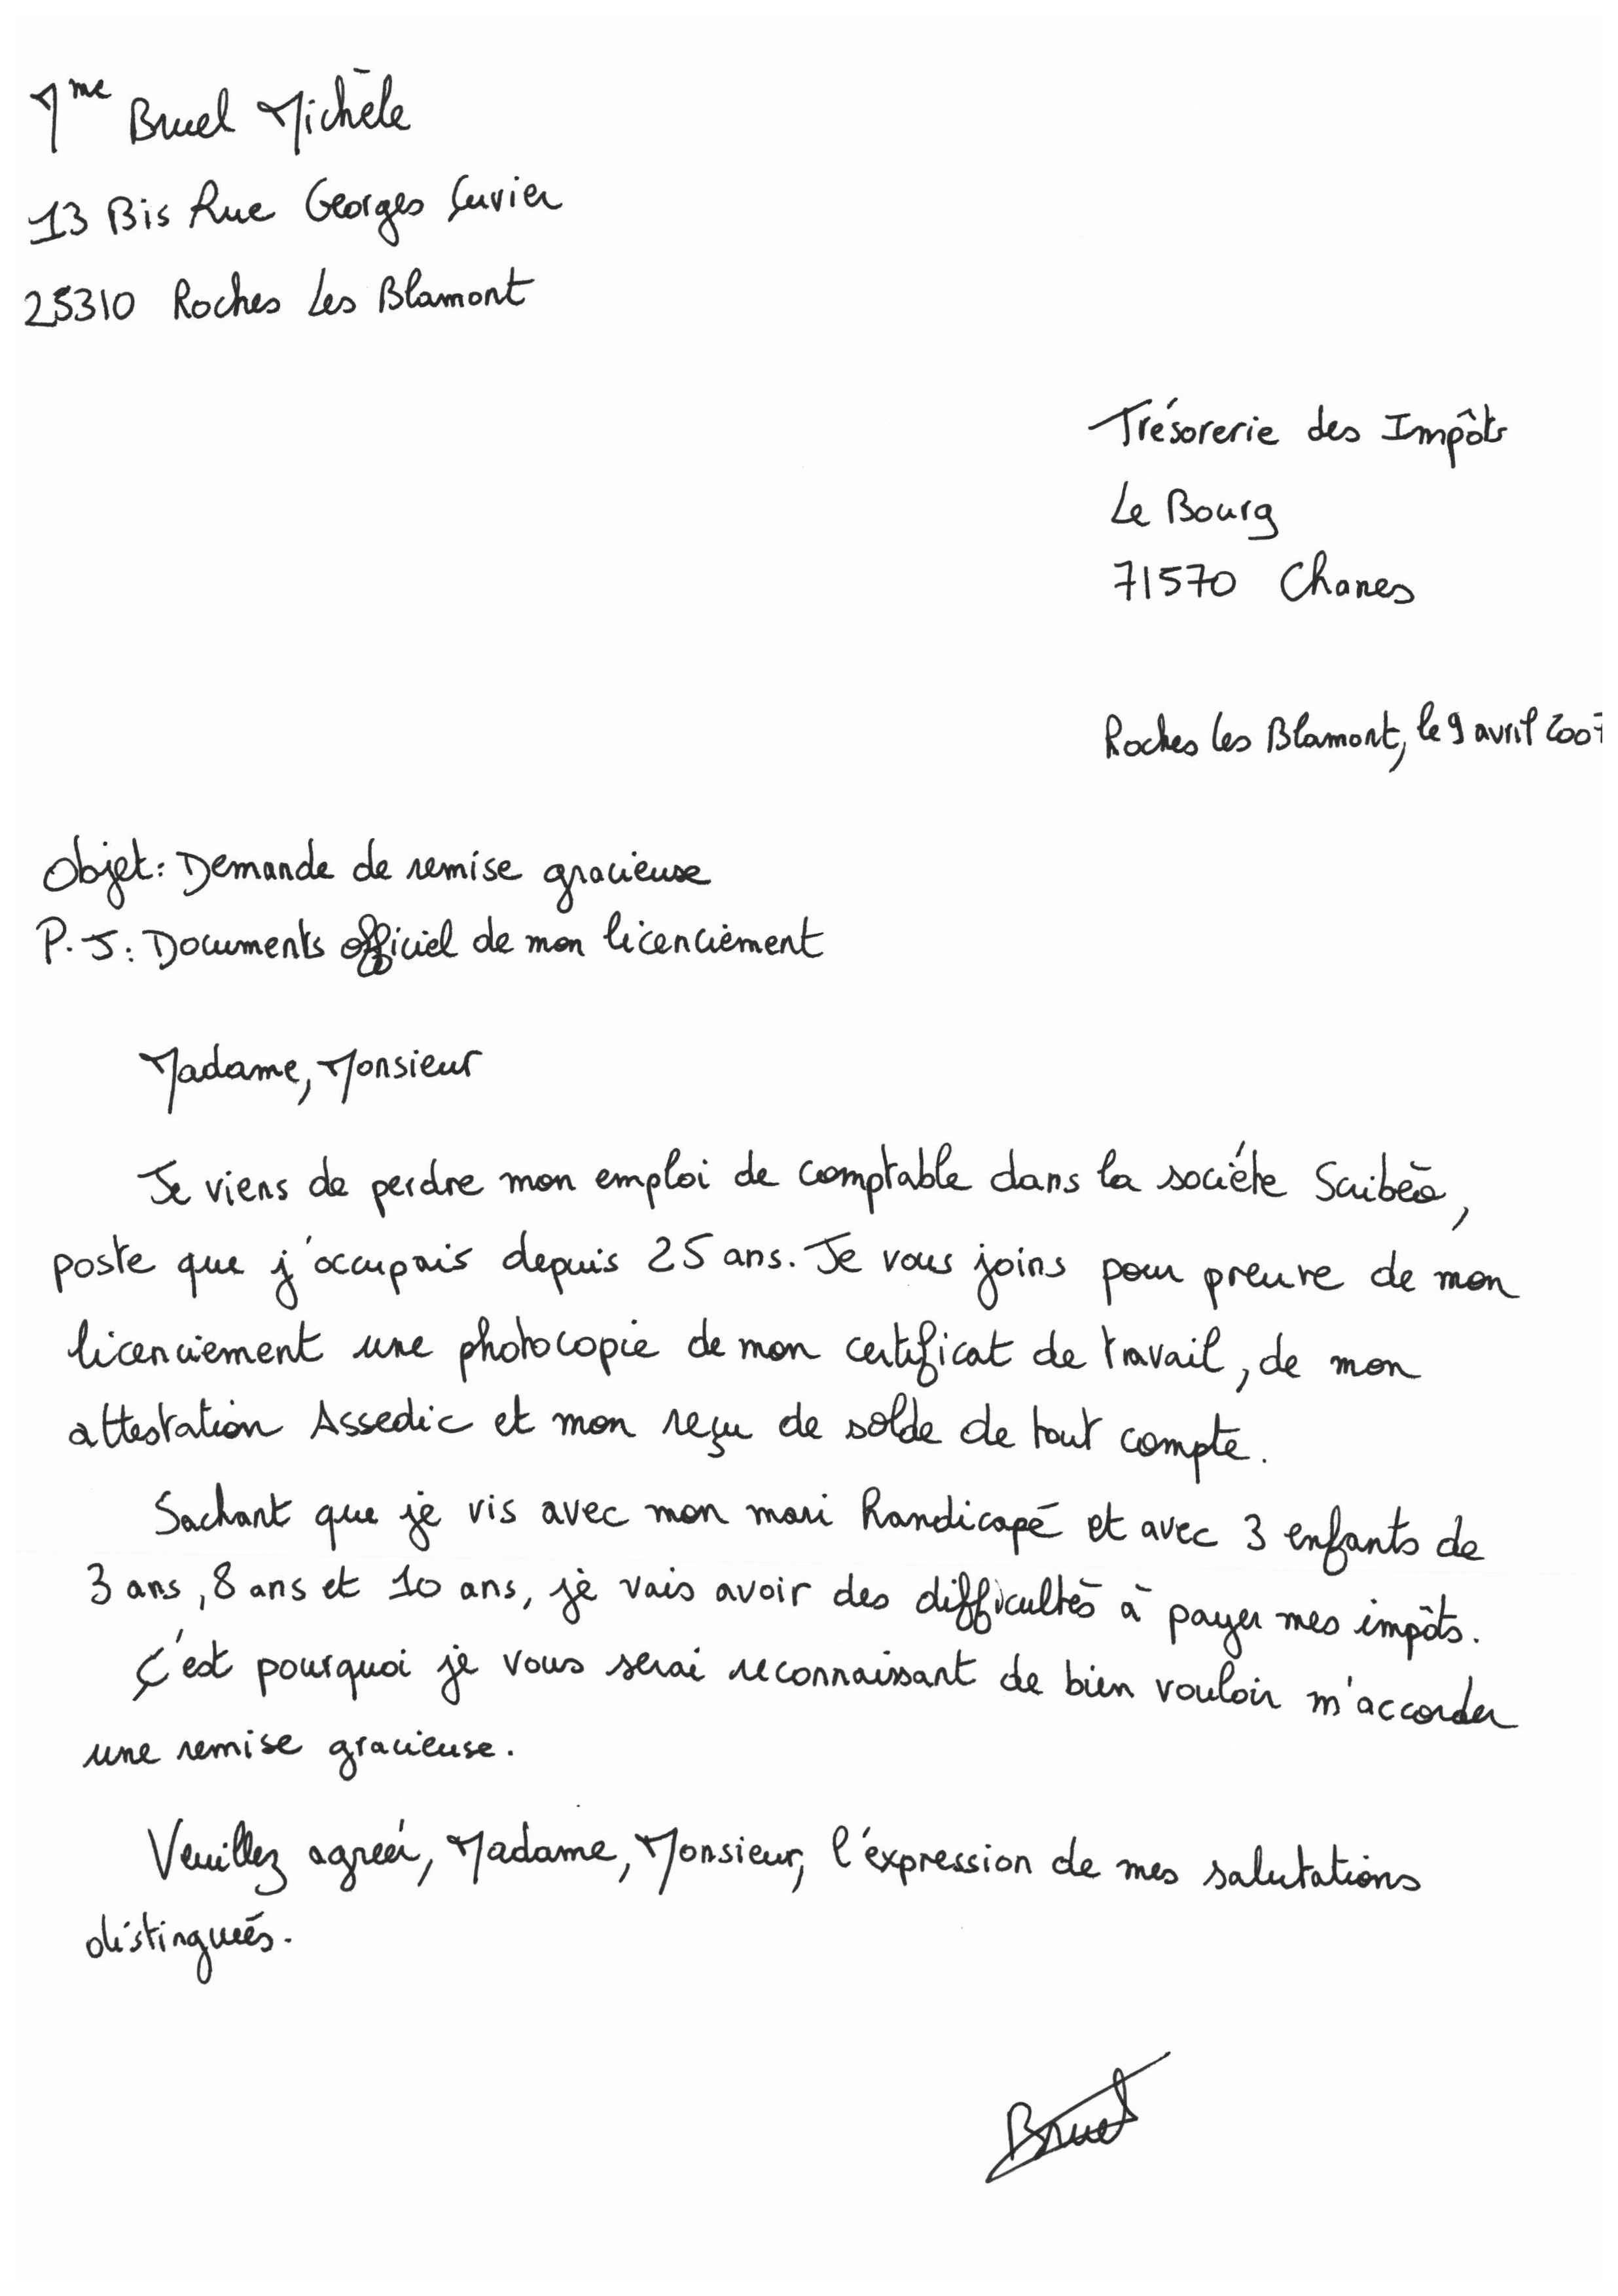 Mme Bruel Michèle
13 Bis Rue Georges Cuvier
25310 Roches Les Blamont
Trésorerie des Impôts
Le Bourg
71570 Chanes
Roches les Blamont, le 9 avril 2007
Objet: Demande de remise gracieuse
P.J: Documents officiel de mon licenciement
Madame, Monsieur
Je viens de perdre mon emploi de comptable dans la société Scribèo,
poste que j'occupais depuis 25 ans. Je vous joins pour preuve de mon
licenciement une photocopie de mon certificat de travail, de mon
attestation Assedic et mon reçu de solde de tout compte.
Sachant que je vis avec mon mari handicapé et avec 3 enfants de
3 ans, 8 ans et 10 ans, je vais avoir des difficultés à payer mes impôts.
C'est pourquoi je vous serai reconnaissant de bien vouloir m'accorder
une remise gracieuse.
Veuillez agréér, Madame, Monsieur, l'expression de mes salutations
distingués.
Bruel